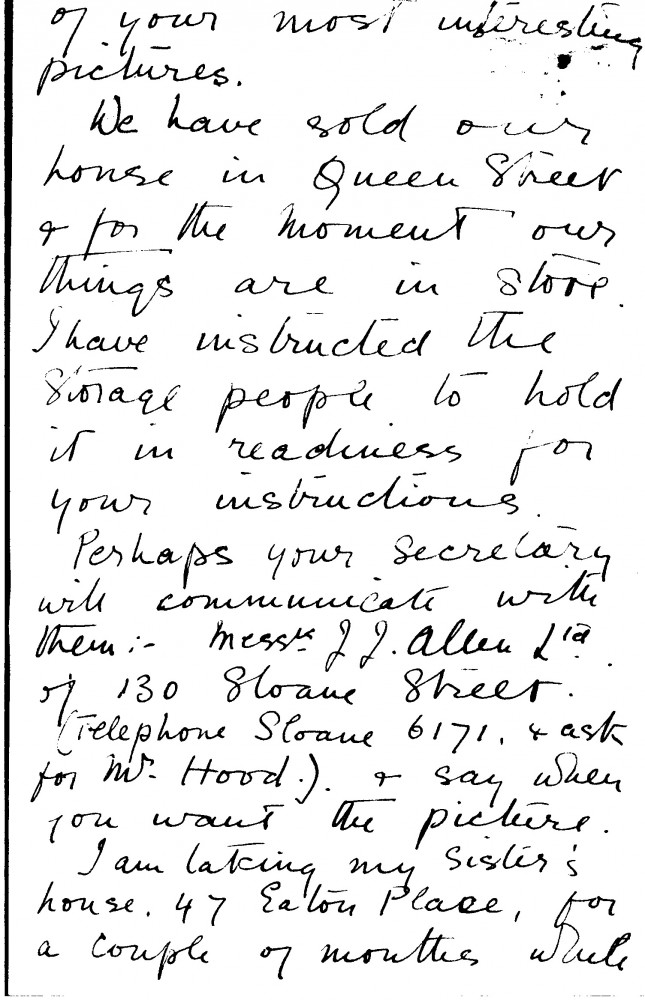 of your most interesting
pictures.
We have sold our
house in Queen Street
& for the moment our
things are in store.
I have instructed the
Storage people to hold
it in readiness for
your instructions.
Perhaps your secretary
will communicate with
them:- Messrs J. J. Allen Ltd.
of 130 Sloane Street.
(Telephone Sloane 6171. & ask
for Mr. Hood.). & say when
you want the picture.
I am taking my sister's
house. 47 Eaton Place, for
a couple of months while